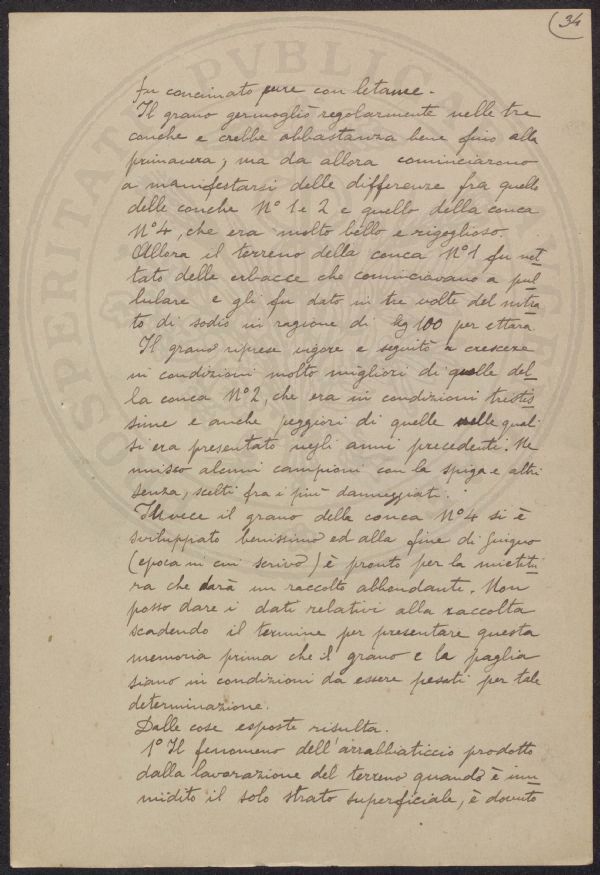 34
fu concimato pure con letame.
Il grano germogliò regolarmente nelle tre
conche e crebbe abbastanza bene fino alla
primavera, ma da allora cominciarono
a manifestarsi delle differenze fra quello
delle conche N° 1 e 2 e quello della conca
N° 4, che era molto bello e rigoglioso.
Allora il terreno della conca N° 1 fu net-
tato delle erbacce che cominciavano a pul-
lulare e gli fu dato in tre volte del nitra-
to di sodio in ragione di kg 100 per ettara.
Il grano riprese vigore e seguitò a crescere
in condizioni molto migliori di quelle del-
la conca N° 2, che era in condizioni tristis-
sime e anche peggiori di quelle nelle quali
si era presentato negli anni precedenti. Ne
unisco alcuni campioni con la spiga e altri
senza, scelti fra i più danneggiati.
Invece il grano della conca N° 4 si è
sviluppato benissimo ed alla fine di Giugno
(epoca in cui scrivo) è pronto per la mietitu-
ra che darà un raccolto abbondante. Non
posso dare i dati relativi alla raccolta
scadendo il termine per presentare questa
memoria prima che il grano e la paglia
siano in condizioni da essere pesati per tale
determinazione.
Dalle cose esposte risulta.
1° Il fenomeno dell'arrabbiaticcio prodotto
dalla lavorazione del terreno quando è inu-
midito il solo strato superficiale, è dovuto